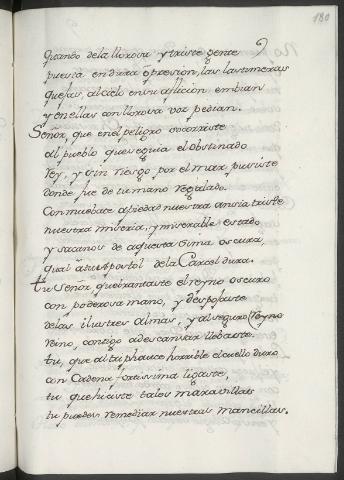 180
Quando dela llorosa y triste gente
puesta en dura opresion, las lastimeras
quejas, al cielo en su aflicion embian
y en ellas con llorosa voz pedian.
Señor, que en el peligro socorriste
al pueblo que seguia el obstinado
rey, y sin riesgo por el mar pusiste
donde fue de tu mano regalado.
Con muebate a piedad nuestra ansia triste
nuestra miseria, y miserable estado
y sacanos de aquesta sima oscura,
qual a tu Apostol de la Carcel dura.
tu Señor, quebrantaste el reyno oscuro
con poderosa mano, y despojaste
de las ilustres almas, y al seguro Reyno
reino, contigo a descansar llebaste.
tu, que al tuphauce horrible el cuello duro
con Cadena fortissima ligaste,
tu que hiciste tales marabillas
tu puedes remediar nuestras mancillas.